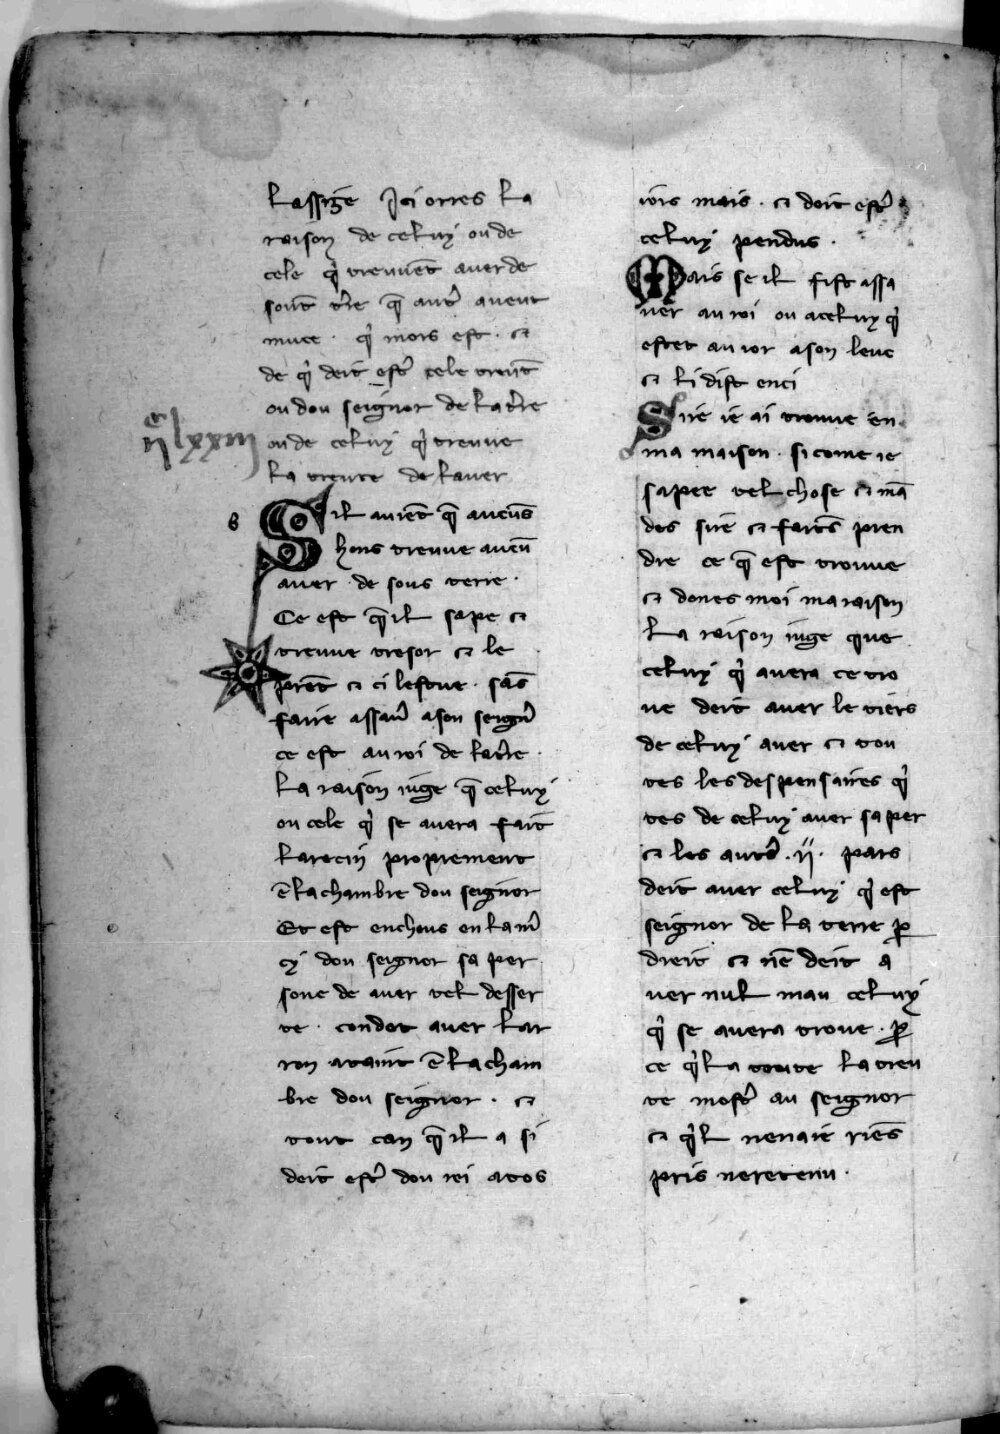 lassize Ici orres la
raison de celuy ou de
cele q̇ treuuēt auer de
sout t̉re q̄ autr̉ auent
muce · q̇ mors est · ⁊
de q̇ deit estr̉ cele treut̄
ou dou seignor de la t̉re
ou de celuy q̇ treuue
la treute de lauer
lxxiii
Sil auiēt q̄ aucūs
hons treuue aucū
auer · de sous terre ·
Ce est q̄ il sape ⁊
treuue tresor ⁊ le
prēt ⁊ ci lestoue · sās
faire assaur̉ a son seign̉
ce est au roi de la t̉re ·
La raison iuge q̄ celuy
ou cele q̇ se auera fait
larecin proprement
ē la chambre dou seignor
Et est encheus en la m̉
cy dou seignor sa per
sone de auer tel desser
te · con dot auer lar
ron ataint ē la cham
bre dou seignor · ⁊
tout can q̄ il a si
deit estr̉ dou rei a tos
iors mais · ⁊ doit estr̉
celuy pendus ·
Mais se il fist assa
uer au roi ou a celuy q̇
estet au ior a son leuc
⁊ li dist enci
Sire ie ai trouue en
ma maison · si come ie
sapee tel chose ⁊ mā
des sire ⁊ faites pren
dre ce q̄ est trouue
⁊ dones moi ma raison
La raison iuge que
celuy q̇ auera ce tro
ue deit auer le tiers
de celuy auer ⁊ tou
tes les despensaires q̇
tes de celuy auer saper
⁊ les autr̉ · ii · pars
deit auer celuy q̇ est
seignor de la terre p̱
dreit ⁊ nē deit a
uer nul mau celuy
q̇ se auera troue · p̱
ce q̇ la toute la treu
te mostr̉ au seignor
⁊ q̇l nen aie riēs
pris ne retenu ·